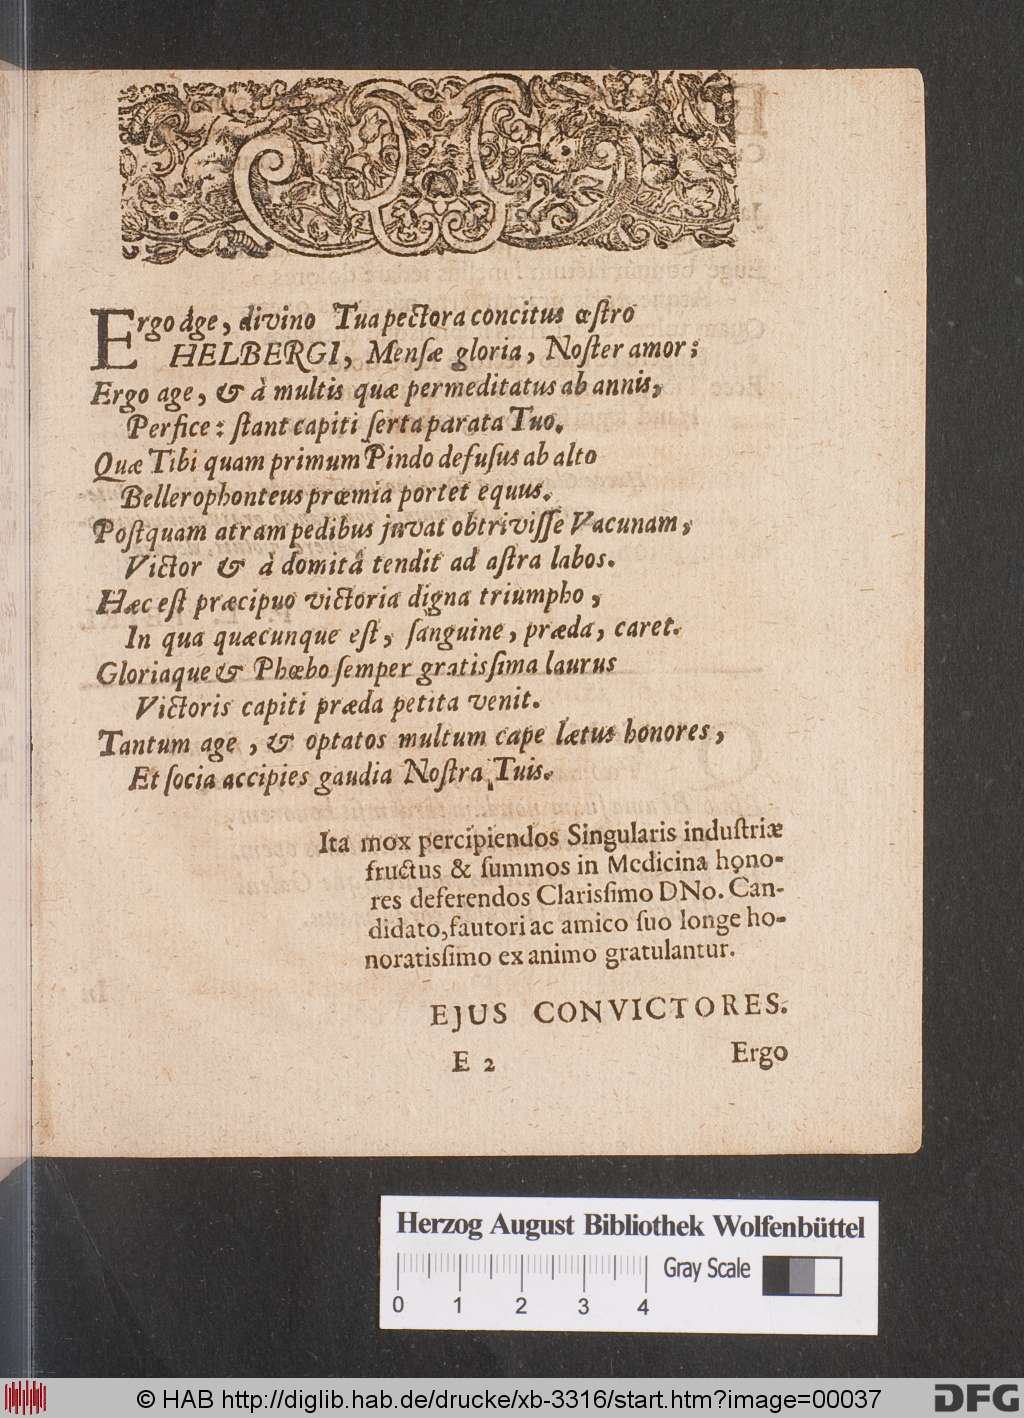 Ergo age, divino Tua pectora concitus œſtro
HELBERGI, Menſæ gloria, Noſter amor;
Ergo age, & à multis quæ permeditatus ab annis,
Perfice: ſtant capiti ſerta parata Tuo.
Quæ Tibi quam primum Pindo defuſus ab alto
Bellerophonteus præmia portet equus.
Poſtquam atram pedibus juvat obtriviſſe Vacunam,
Victor & à domitâ tendit ad aſtra labos.
Hæc eſt præcipuo victoria digna triumpho,
In qua quæcunque eſt, ſanguine, præda, caret.
Gloriaque & Phœbo ſemper gratisſima laurus
Victoris capiti præda petita venit.
Tantum age, & optatos multum cape lætus honores,
Et ſocia accipies gaudia Noſtra Tuis.
Ita mox percipiendos Singularis induſtriæ
fructus & ſummos in Medicina hono-
res deferendos Clarisſimo DNo. Can-
didato, fautori ac amico ſuo longe ho-
noratisſimo ex animo gratulantur.
EJUS CONVICTORES.
E 2 Ergo
Herzog August Bibliothek Wolfenbüttel
Gray Scale
0 1 2 3 4
© HAB http://diglib.hab.de/drucke/xb-3316/start.htm?image=00037
DFG